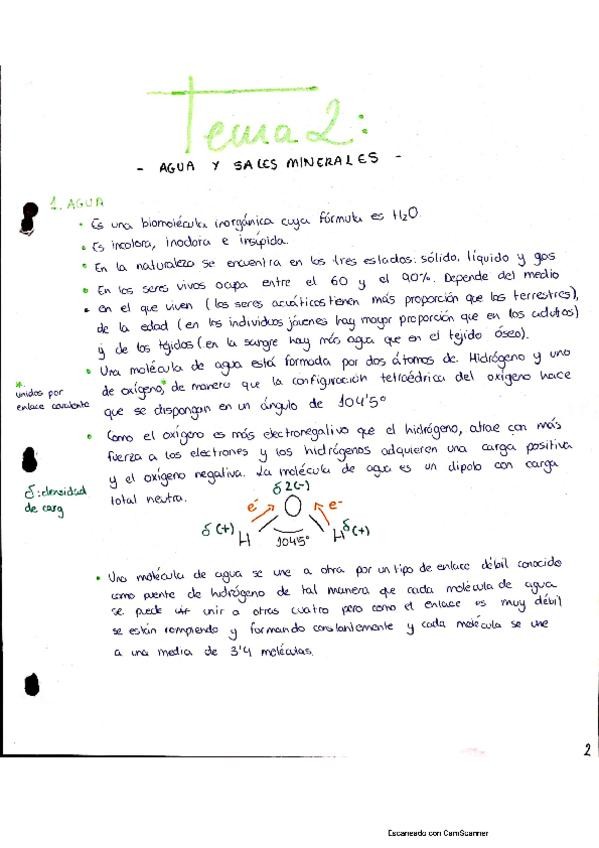 Tema 2:
- AGUA Y SALES MINERALES -
1. AGUA
• Es una biomolécula inorgánica cuya fórmula es H2O.
• Es incolora, inodora e insípida.
• En la naturaleza se encuentra en los tres estados: sólido, líquido y gas
• En los seres vivos ocupa entre el 60 y el 90%. Depende del medio
• en el que viven (los seres acuáticos tienen más proporción que los terrestres),
de la edad (en los individuos jóvenes hay mayor proporción que en los adultos)
y de los tejidos (en la sangre hay más agua que en el tejido óseo).
• Una molécula de agua está formada por dos átomos de Hidrógeno y uno
de oxígeno,* de manera que la configuración tetraédrica del oxígeno hace
que se dispongan en un ángulo de 104'5°
*
unidos por
enlace covalente
• Como el oxígeno es más electronegativo que el hidrógeno, atrae con más
fuerza a los electrones y los hidrógenos adquieren una carga positiva
y el oxígeno negativa. La molécula de agua es un dipolo con carga
total neutra.
δ: densidad
de carg
δ2(-)
e- O e-
δ(+) H 104'5° H δ(+)
• Una molécula de agua se une a otra por un tipo de enlace débil conocido
como puente de hidrógeno de tal manera que cada molécula de agua
se puede unir a otras cuatro pero como el enlace es muy débil
se están rompiendo y formando constantemente y cada molécula se une
a una media de 3'4 moléculas.
2
Escaneado con CamScanner